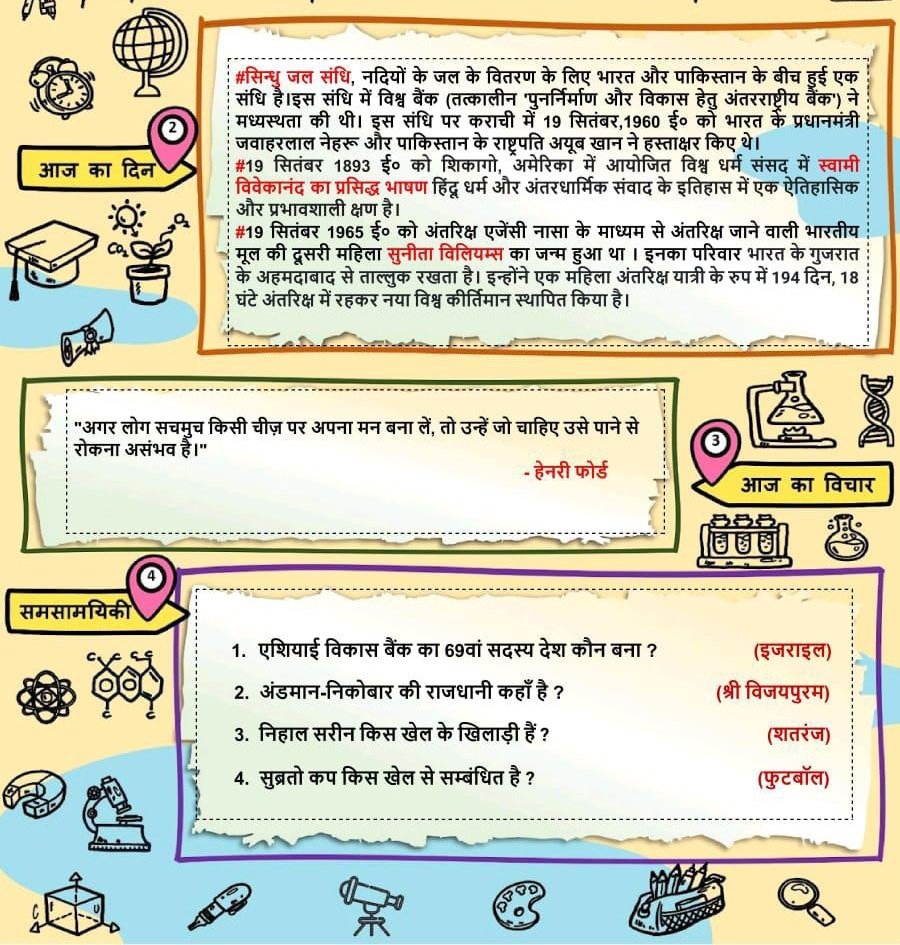 2
आज का दिन
#सिन्धु जल संधि, नदियों के जल के वितरण के लिए भारत और पाकिस्तान के बीच हुई एक
संधि है।इस संधि में विश्व बैंक (तत्कालीन 'पुनर्निर्माण और विकास हेतु अंतरराष्ट्रीय बैंक') ने
मध्यस्थता की थी। इस संधि पर कराची में 19 सितंबर,1960 ई० को भारत के प्रधानमंत्री
जवाहरलाल नेहरू और पाकिस्तान के राष्ट्रपति अयूब खान ने हस्ताक्षर किए थे।
#19 सितंबर 1893 ई० को शिकागो, अमेरिका में आयोजित विश्व धर्म संसद में स्वामी
विवेकानंद का प्रसिद्ध भाषण हिंदू धर्म और अंतरधार्मिक संवाद के इतिहास में एक ऐतिहासिक
और प्रभावशाली क्षण है।
#19 सितंबर 1965 ई० को अंतरिक्ष एजेंसी नासा के माध्यम से अंतरिक्ष जाने वाली भारतीय
मूल की दूसरी महिला सुनीता विलियम्स का जन्म हुआ था । इनका परिवार भारत के गुजरात
के अहमदाबाद से ताल्लुक रखता है। इन्होंने एक महिला अंतरिक्ष यात्री के रुप में 194 दिन, 18
घंटे अंतरिक्ष में रहकर नया विश्व कीर्तिमान स्थापित किया है।
CO₂
O₂
"अगर लोग सचमुच किसी चीज़ पर अपना मन बना लें, तो उन्हें जो चाहिए उसे पाने से
रोकना असंभव है।"
- हेनरी फोर्ड
3
आज का विचार
4
समसामयिकी
1. एशियाई विकास बैंक का 69वां सदस्य देश कौन बना ? (इजराइल)
2. अंडमान-निकोबार की राजधानी कहाँ है ? (श्री विजयपुरम)
3. निहाल सरीन किस खेल के खिलाड़ी हैं ? (शतरंज)
4. सुब्रतो कप किस खेल से सम्बंधित है ? (फुटबॉल)